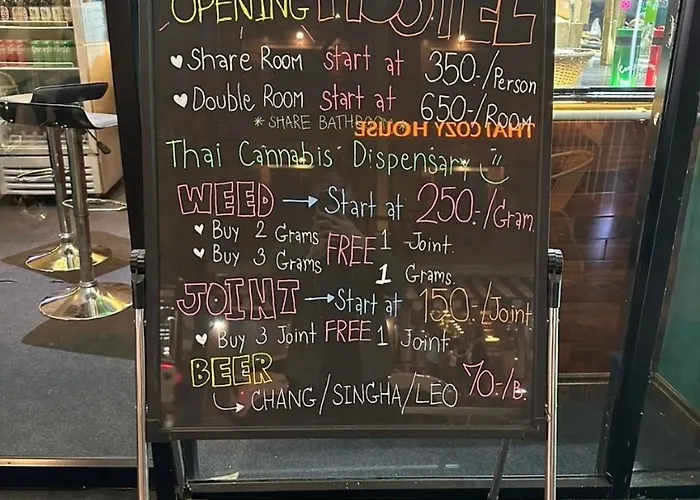 OPENING HOSTEL
Share Room start at 350.-/Person
Double Room start at 650.-/Room
* SHARE BATHROOM *
THAI COZY HOUSE
Thai Cannabis Dispensary
WEED → Start at 250.-/Gram.
Buy 2 Grams FREE 1 Joint.
Buy 3 Grams 1 Grams.
JOINT → Start at 150.-/Joint
Buy 3 Joint FREE 1 Joint
BEER
CHANG/SINGHA/LEO 70.-/B.